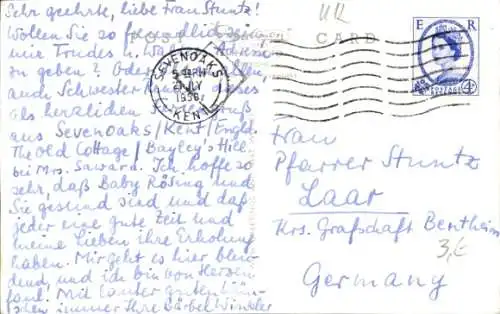 Sehr geehrte, liebe Frau Stuntz!
Wollen Sie so freundlich sein
mir Trudes u. Adresse
zu geben? Oder
auch Schwester dieses
als herzlichen Gruß
aus Sevenoaks/Kent/Engld.
The Old Cottage / Bayley's Hill
bei Mrs. Saward. Ich hoffe so
sehr, daß Baby Rösing und
Sie gesund sind und daß
jeder eine gute Zeit und
meine Lieben ihre Erholung
haben. Mir geht es hier blen-
dend, und ich bin von Herzen
faul! Mit lauter guten Wün-
schen immer Ihre Bärbel Winkler
POST CARD
SEVENOAKS
5 PM
JLY
1958
KENT
E R
POSTAGE
4D
Frau
Pfarrer Stuntz
Laar
Krs. Grafschaft Bentheim
3,€
Germany